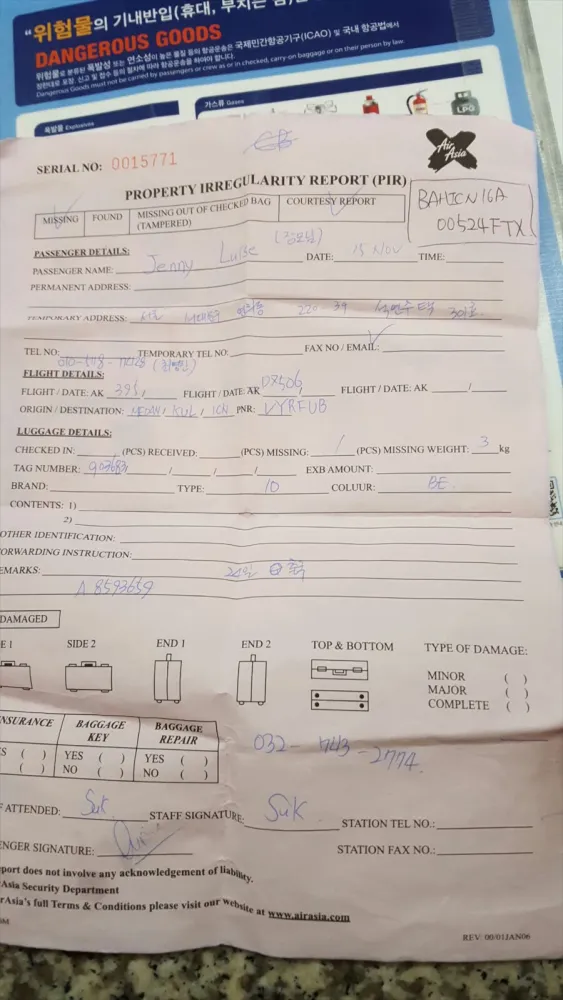 "위험물의 기내반입(휴대, 부치는 짐)
DANGEROUS GOODS
위험물로 분류된 폭발성 또는 연소성이 높은 물질 등의 항공운송은 국제민간항공기구(ICAO) 및 국내 항공법에서
Dangerous Goods must not be carried by passengers or crew as or in checked, carry-on baggage or on their person by law.
폭발물 Explosives
가스류 Gases
LPG
SERIAL NO: 0015771
Air Asia
PROPERTY IRREGULARITY REPORT (PIR)
MISSING FOUND MISSING OUT OF CHECKED BAG (TAMPERED) COURTESY REPORT
BAHICN16A
00524FTX
PASSENGER DETAILS:
PASSENGER NAME: Jenny Luise DATE: 15 NOV TIME:
PERMANENT ADDRESS:
TEMPORARY ADDRESS: 서울 서대문구 220-39 301호
TEL NO: TEMPORARY TEL NO: FAX NO / EMAIL:
FLIGHT DETAILS:
FLIGHT / DATE: AK 395 / FLIGHT / DATE: AK D7506 / FLIGHT / DATE: AK /
ORIGIN / DESTINATION: MEDAN / KUL / ICN PNR: VYRFUB
LUGGAGE DETAILS:
CHECKED IN: (PCS) RECEIVED: (PCS) MISSING: 1 (PCS) MISSING WEIGHT: 3 kg
TAG NUMBER: 903683 / / / / EXB AMOUNT:
BRAND: TYPE: 10 COLUUR: BE
CONTENTS: 1)
2)
OTHER IDENTIFICATION:
FORWARDING INSTRUCTION:
EMARKS: 20일
A 8593659
DAMAGED
E 1 SIDE 2 END 1 END 2 TOP & BOTTOM TYPE OF DAMAGE:
MINOR ( )
MAJOR ( )
COMPLETE ( )
NSURANCE BAGGAGE KEY BAGGAGE REPAIR
S ( ) YES ( ) YES ( )
( ) NO ( ) NO ( )
032-743-2774
F ATTENDED: Suk STAFF SIGNATURE: Suk STATION TEL NO.:
ENGER SIGNATURE: STATION FAX NO.:
port does not involve any acknowledgement of liability.
rAsia Security Department
rAsia's full Terms & Conditions please visit our website at www.airasia.com
REV: 00/01JAN06